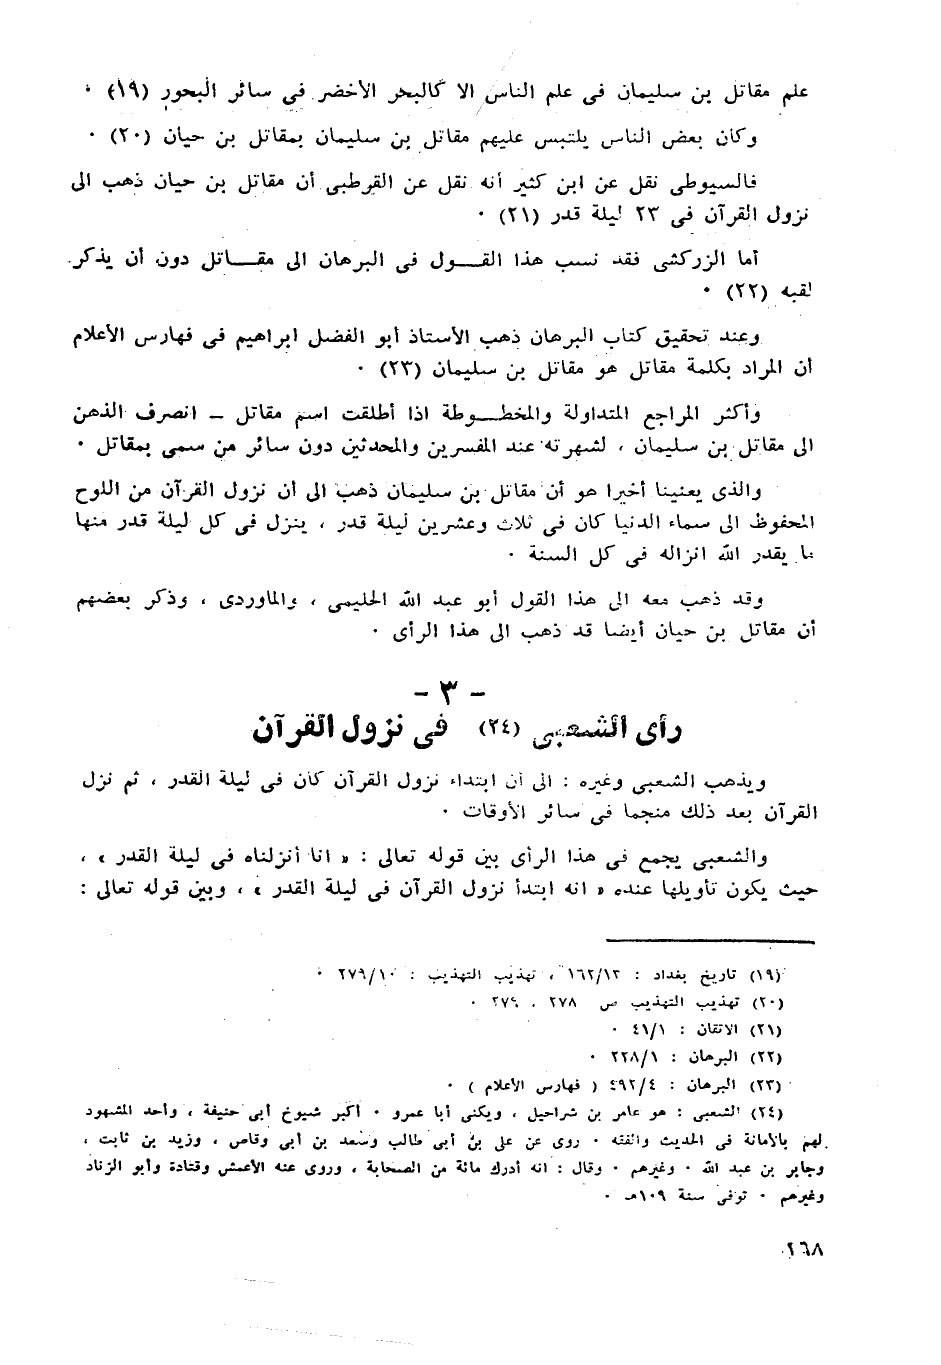 علم مقاتل بن سليمان فى علم الناس الا كالبحر الأخضر فى سائر البحور (١٩) ٠
وكان بعض الناس يلتبس عليهم مقاتل بن سليمان بمقاتل بن حيان (٢٠) ٠
فالسيوطى نقل عن ابن كثير أنه نقل عن القرطبى أن مقاتل بن حيان ذهب الى
نزول القرآن فى ٢٣ ليلة قدر (٢١) ٠
أما الزركشى فقد نسب هذا القول فى البرهان الى مقاتل دون أن يذكر
لقبه (٢٢) ٠
وعند تحقيق كتاب البرهان ذهب الأستاذ أبو الفضل ابراهيم فى فهارس الأعلام
أن المراد بكلمة مقاتل هو مقاتل بن سليمان (٢٣) ٠
وأكثر المراجع المتداولة والمخطوطة اذا أطلقت اسم مقاتل ــ انصرف الذهن
الى مقاتل بن سليمان ، لشهرته عند المفسرين والمحدثين دون سائر من سمى بمقاتل ٠
والذى يعنينا أخيرا هو أن مقاتل بن سليمان ذهب الى أن نزول القرآن من اللوح
المحفوظ الى سماء الدنيا كان فى ثلاث وعشرين ليلة قدر ، ينزل فى كل ليلة قدر منها
ما يقدر الله انزاله فى كل السنة ٠
وقد ذهب معه الى هذا القول أبو عبد الله الحليمى ، والماوردى ، وذكر بعضهم
أن مقاتل بن حيان أيضا قد ذهب الى هذا الرأى ٠
- ٣ -
رأى الشعبى (٢٤) فى نزول القرآن
ويذهب الشعبى وغيره : الى أن ابتداء نزول القرآن كان فى ليلة القدر ، ثم نزل
القرآن بعد ذلك منجما فى سائر الأوقات ٠
والشعبى يجمع فى هذا الرأى بين قوله تعالى : « انا أنزلناه فى ليلة القدر » ،
حيث يكون تأويلها عنده « انه ابتدأ نزول القرآن فى ليلة القدر » ، وبين قوله تعالى :
(١٩) تاريخ بغداد : ١٦٢/١٣ ، تهذيب التهذيب : ٢٧٩/١٠ ٠
(٢٠) تهذيب التهذيب ص ٢٧٨ ، ٢٧٩ ٠
(٢١) الاتقان : ٤١/١ ٠
(٢٢) البرهان : ٢٢٨/١ ٠
(٢٣) البرهان : ٤٩٢/٤ ( فهارس الأعلام ) ٠
(٢٤) الشعبى : هو عامر بن شراحيل ، ويكنى أبا عمرو ٠ أكبر شيوخ أبى حنيفة ، وأحد المشهود
لهم بالأمانة فى الحديث والفقه ٠ روى عن على بن أبى طالب وسعد بن أبى وقاص ، وزيد بن ثابت ،
وجابر بن عبد الله ٠ وغيرهم ٠ وقال : انه أدرك مائة من الصحابة ، وروى عنه الأعمش وقتادة وأبو الزناد
وغيرهم ٠ توفى سنة ١٠٩هـ ٠
٢٦٨